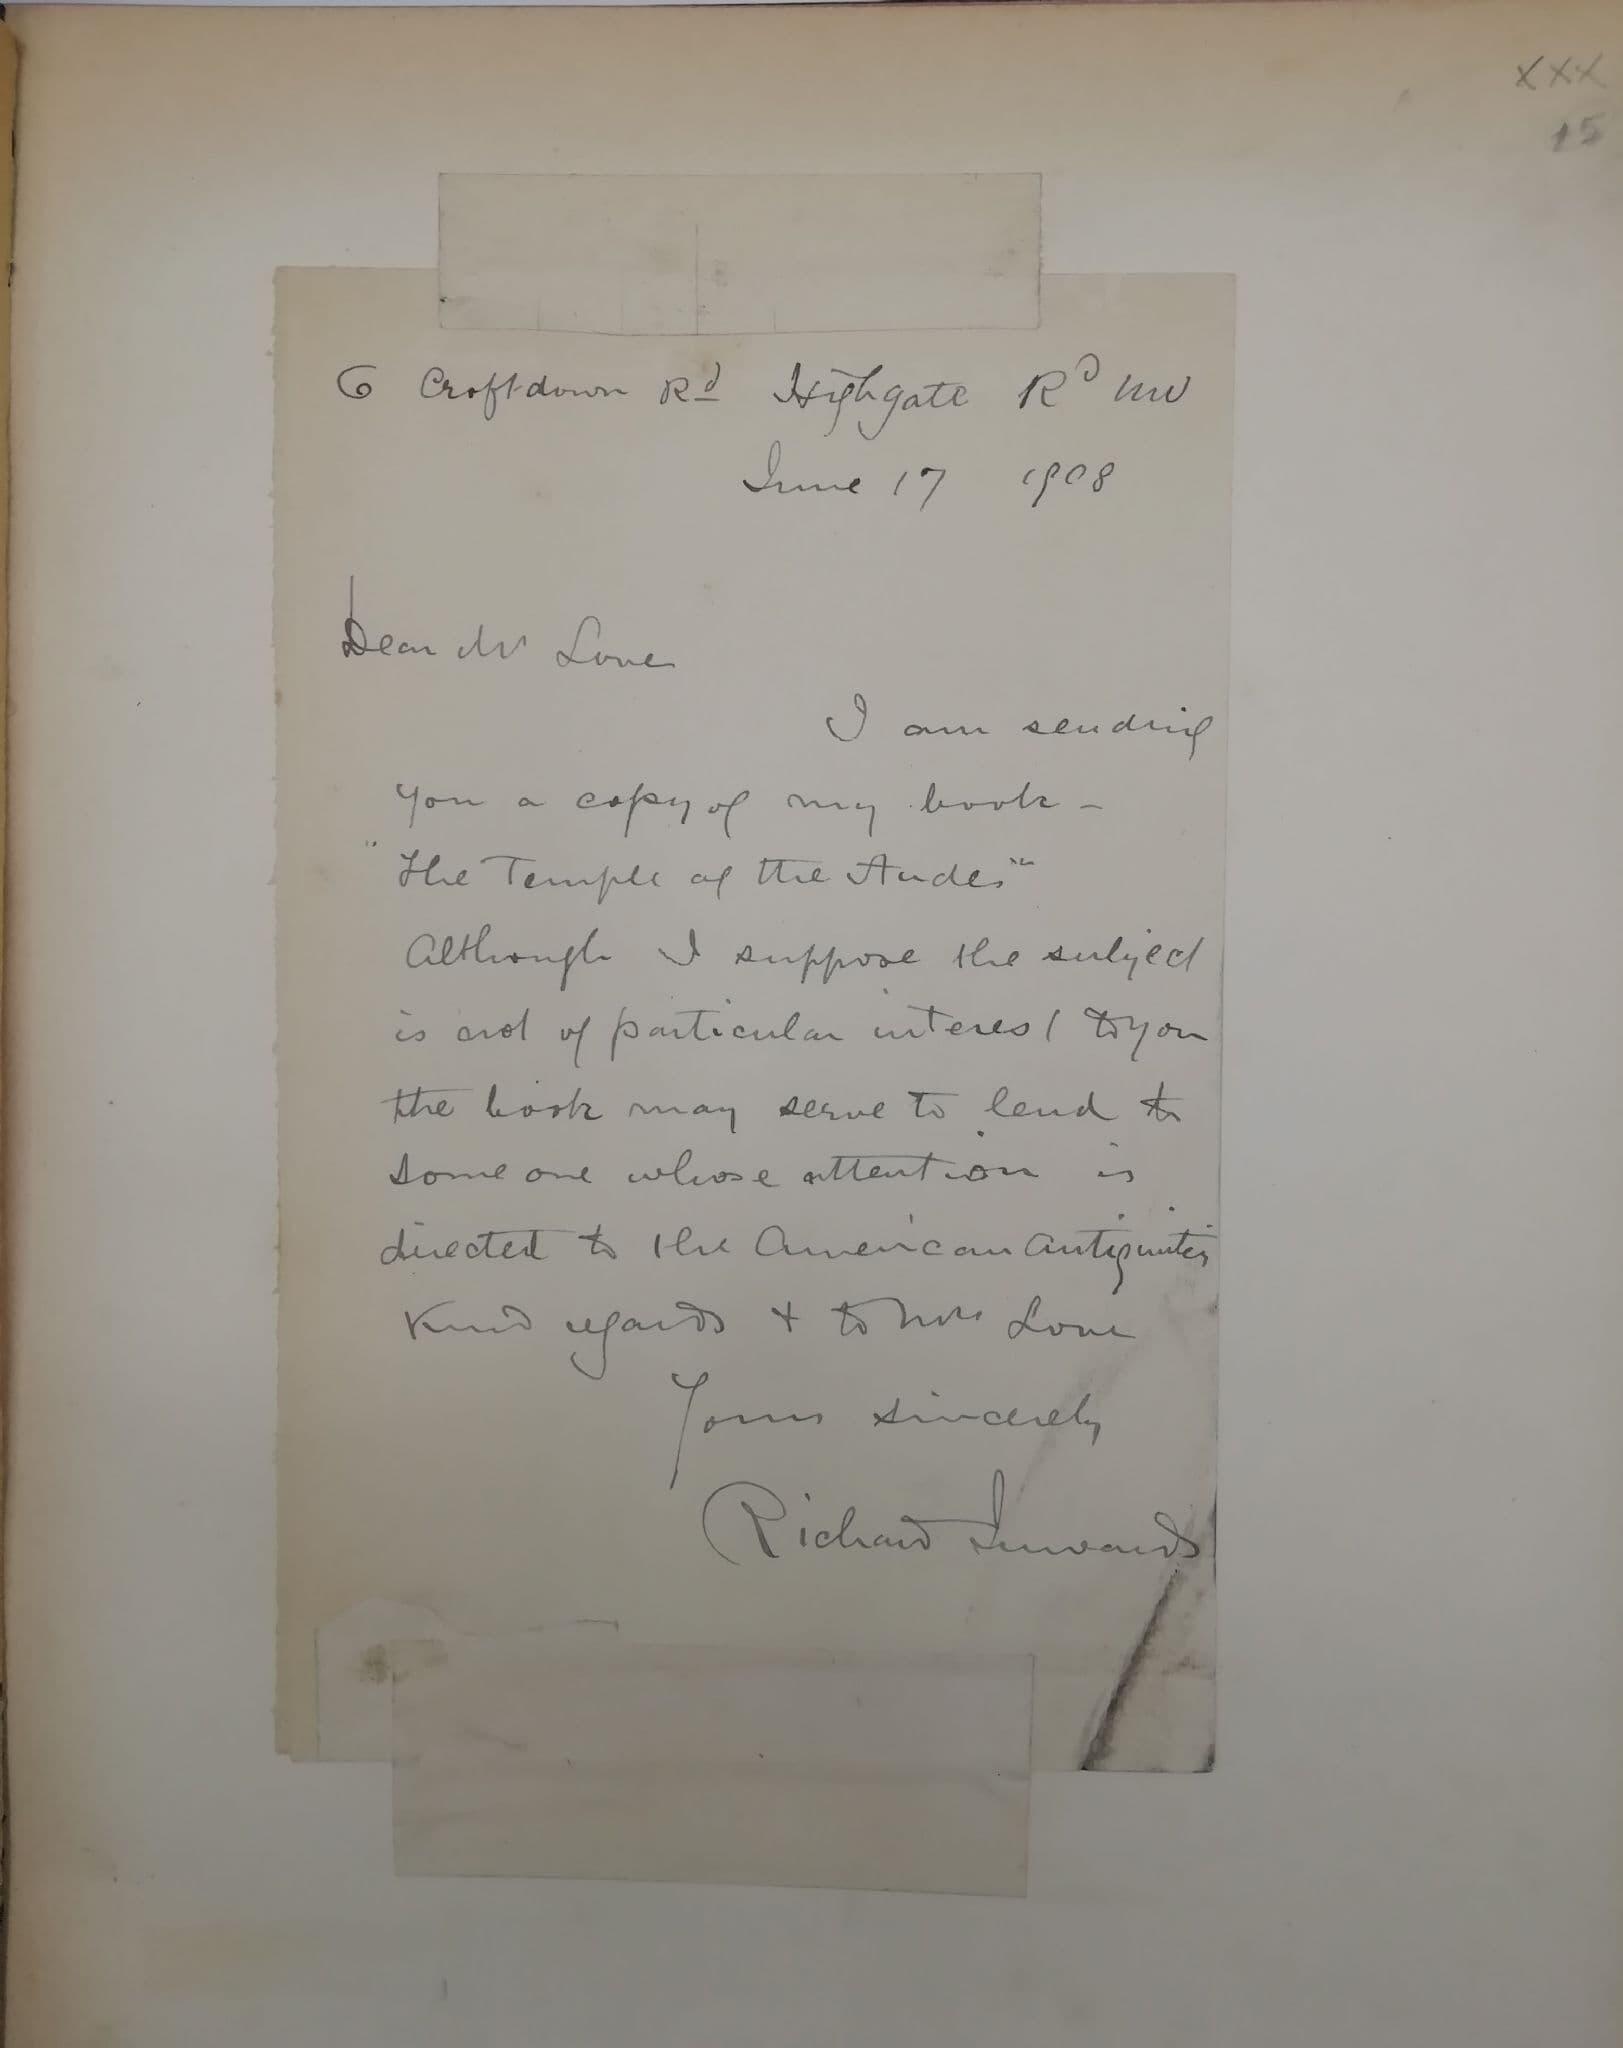 XXX
15
6 Croftdown Rd Highgate Rd NW
June 17 1908
Dear Mr Love
I am sending
you a copy of my book -
"The Temple of the Andes"
Although I suppose the subject
is not of particular interest to you
the book may serve to lend to
some one whose attention is
directed to the American Antiquities
Kind regards & to Mrs Love
Yours sincerely
Richard Inwards